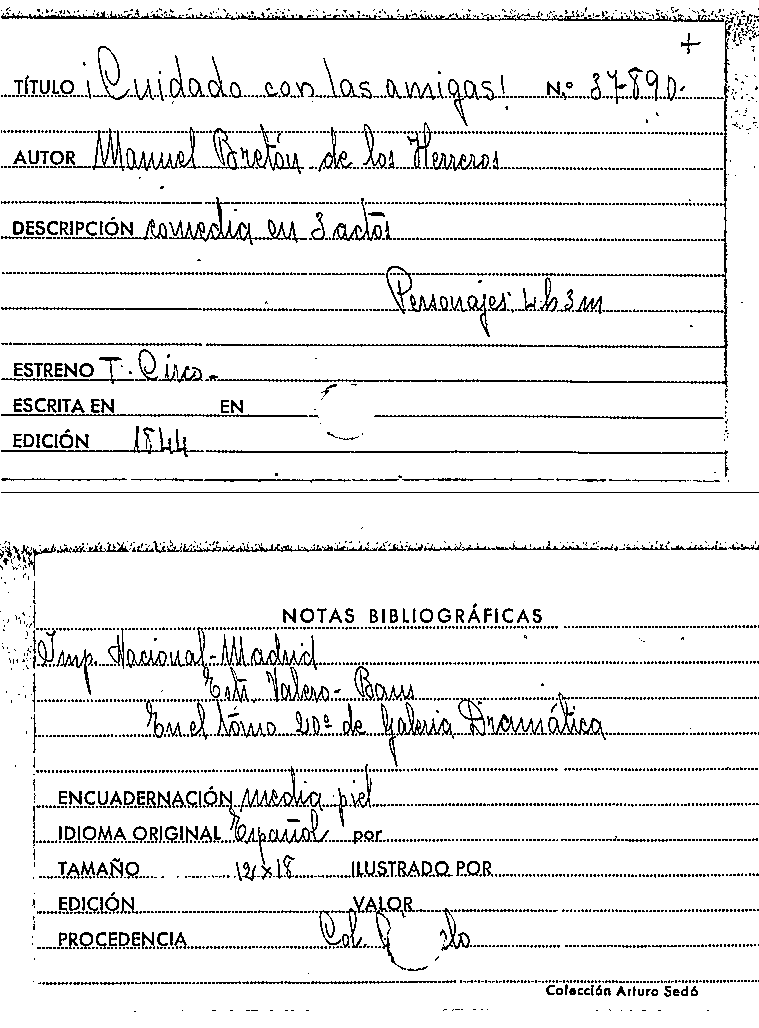 +
TÍTULO ¡Cuidado con las amigas! N.º 37890.
AUTOR Manuel Bretón de los Herreros
DESCRIPCIÓN comedia en 3 actos
Personajes: 4 h 3 m
ESTRENO T. Circo.
ESCRITA EN EN
EDICIÓN 1844
NOTAS BIBLIOGRÁFICAS
Imp. Nacional-Madrid
Estr. Valero-Baus
En el tomo 20º de Galeria Dramática
ENCUADERNACIÓN media piel
IDIOMA ORIGINAL Español por
TAMAÑO 12x18 ILUSTRADO POR
EDICIÓN VALOR
PROCEDENCIA Col.
Colección Arturo Sedó